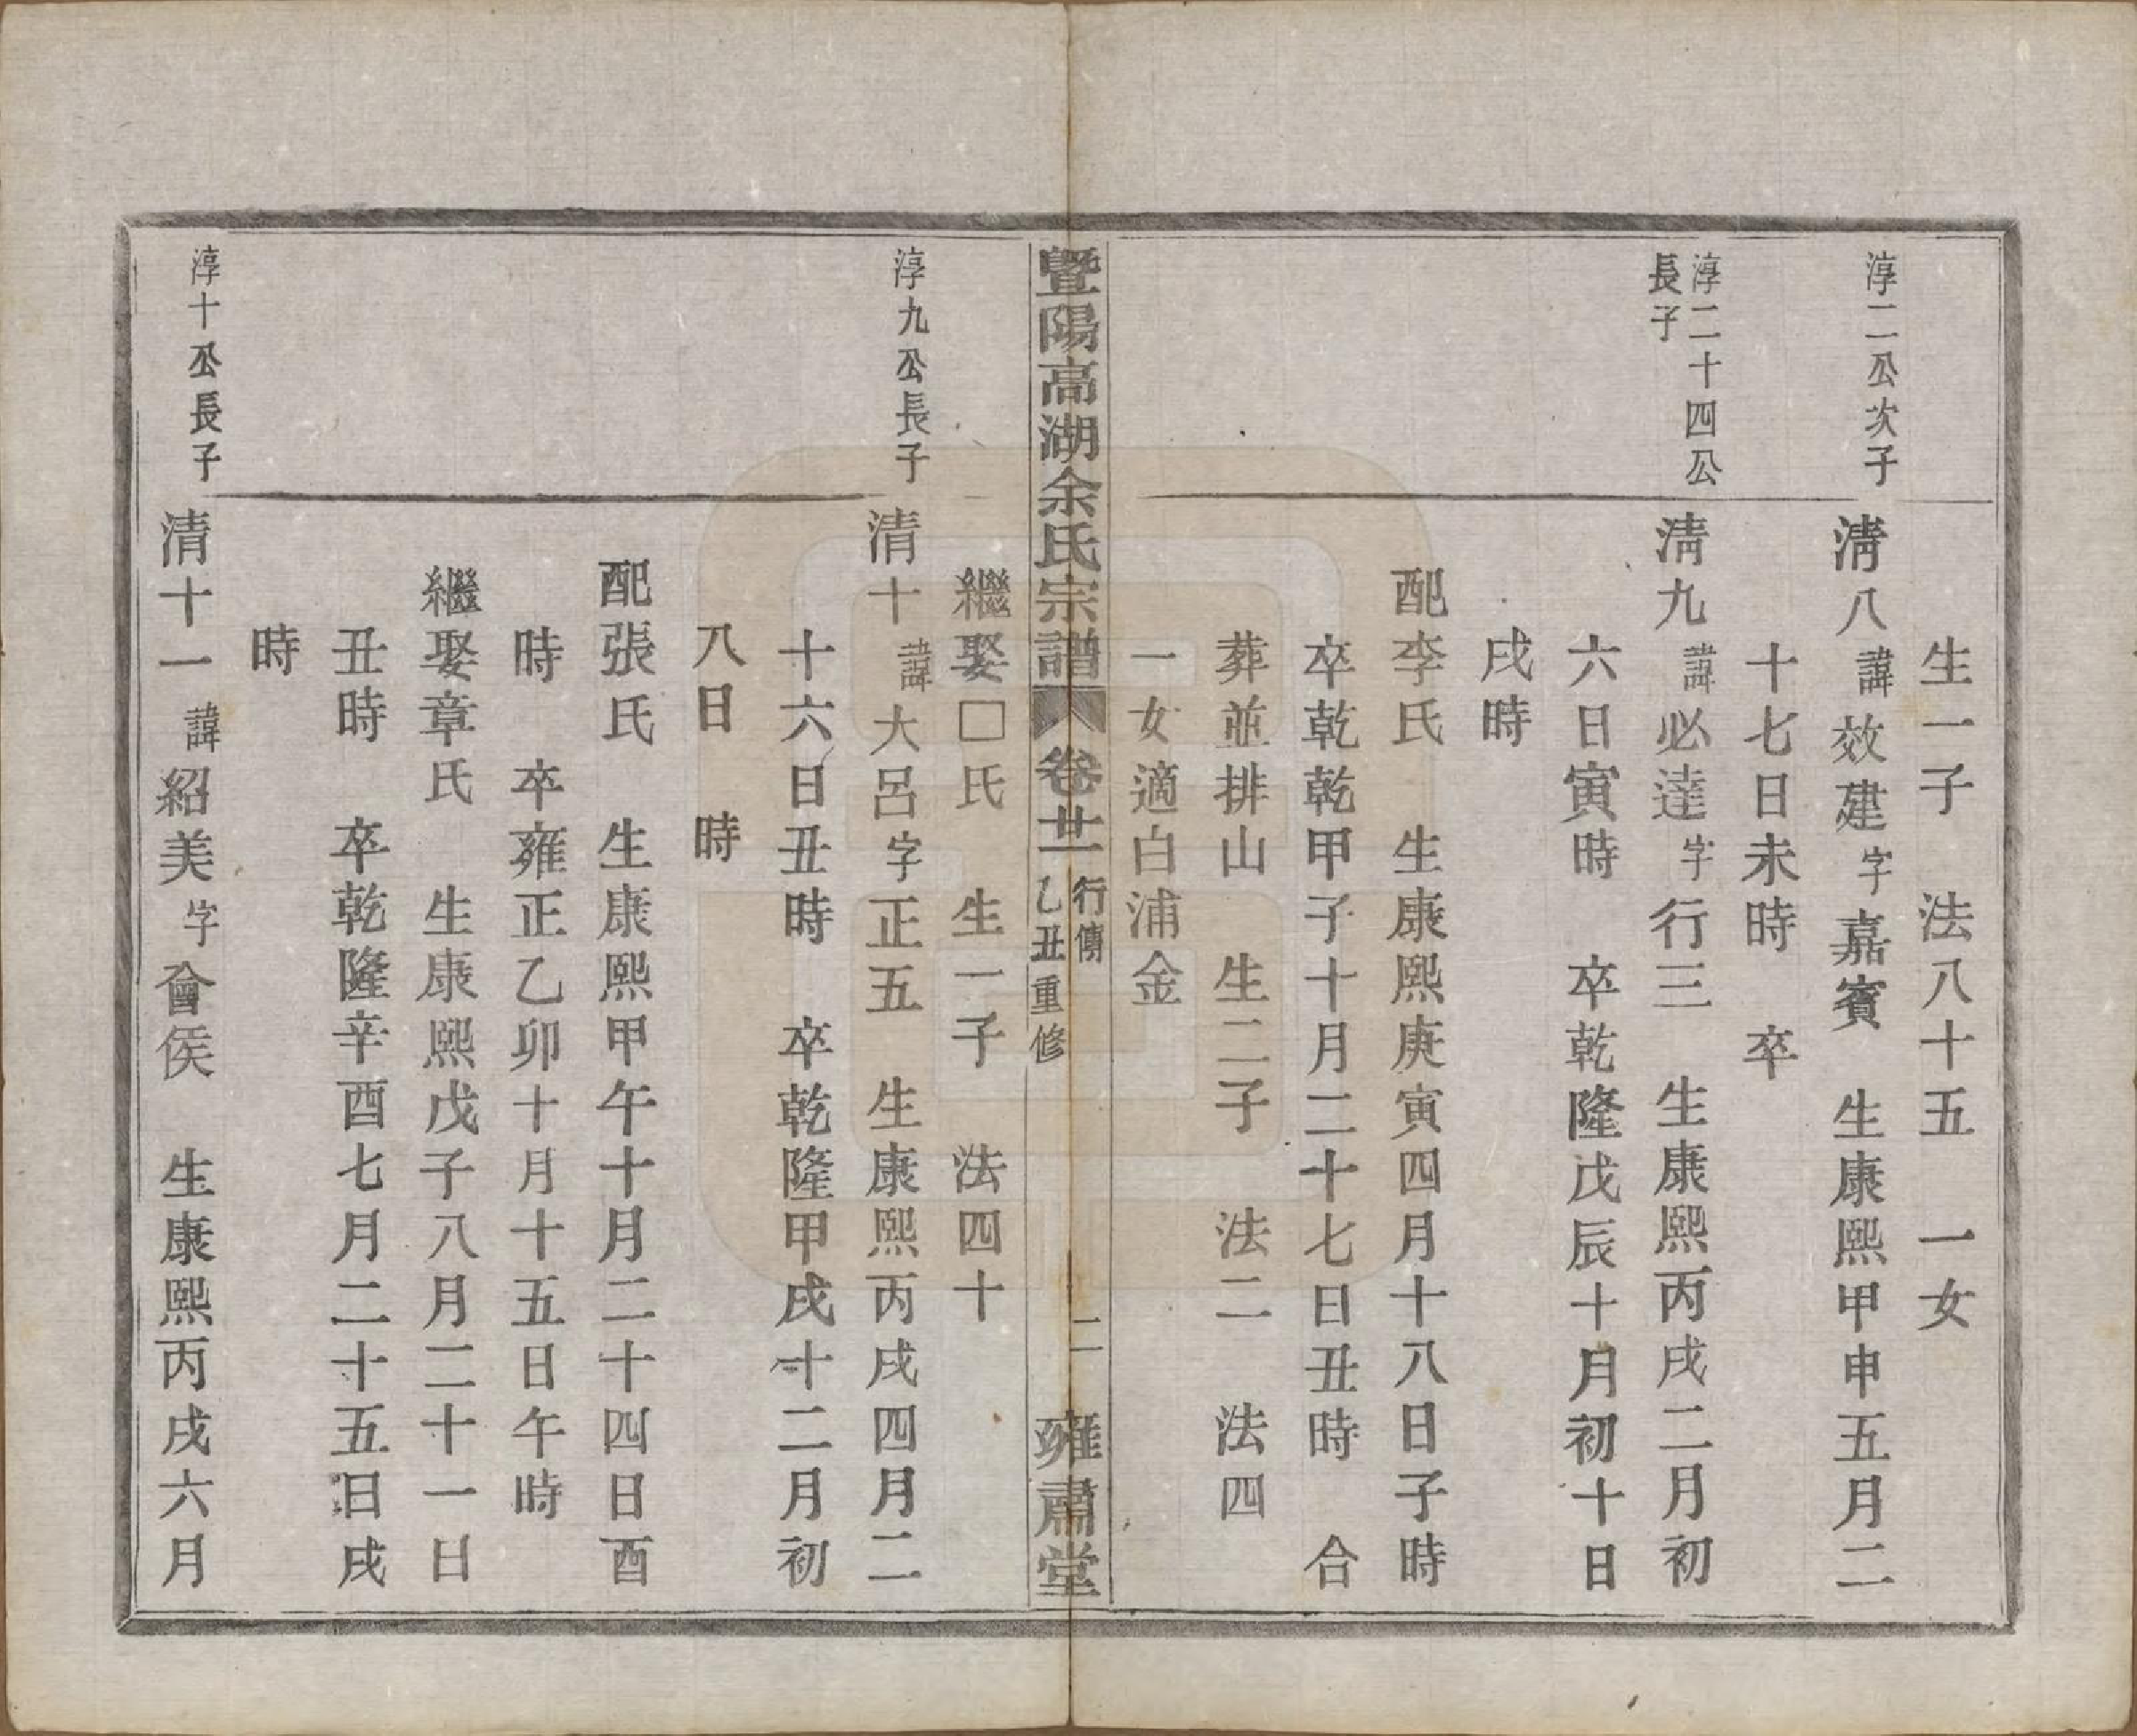 生一子　法八十五　一女
淳二公次子
清八諱效建字嘉賓　生康熙甲申五月二
十七日未時　卒
淳二十四公
長子
清九諱必達字行三　生康熙丙戌二月初
六日寅時　卒乾隆戊辰十月初十日
戌時
配李氏　生康熙庚寅四月十八日子時
卒乾乾甲子十月二十七日丑時　合
葬並排山　生二子　法二　法四
一女適白浦金
暨陽高湖余氏宗譜　卷廿一　行傳　乙丑重修　二　雍肅堂
繼娶□氏　生一子　法四十
淳九公長子
清十諱大呂字正五　生康熙丙戌四月二
十六日丑時　卒乾隆甲戌十二月初
八日　時
配張氏　生康熙甲午十月二十四日酉
時　卒雍正乙卯十月十五日午時
繼娶章氏　生康熙戊子八月二十一日
丑時　卒乾隆辛酉七月二十五日戌
時
淳十公長子
清十一諱紹美字會侯　生康熙丙戌六月